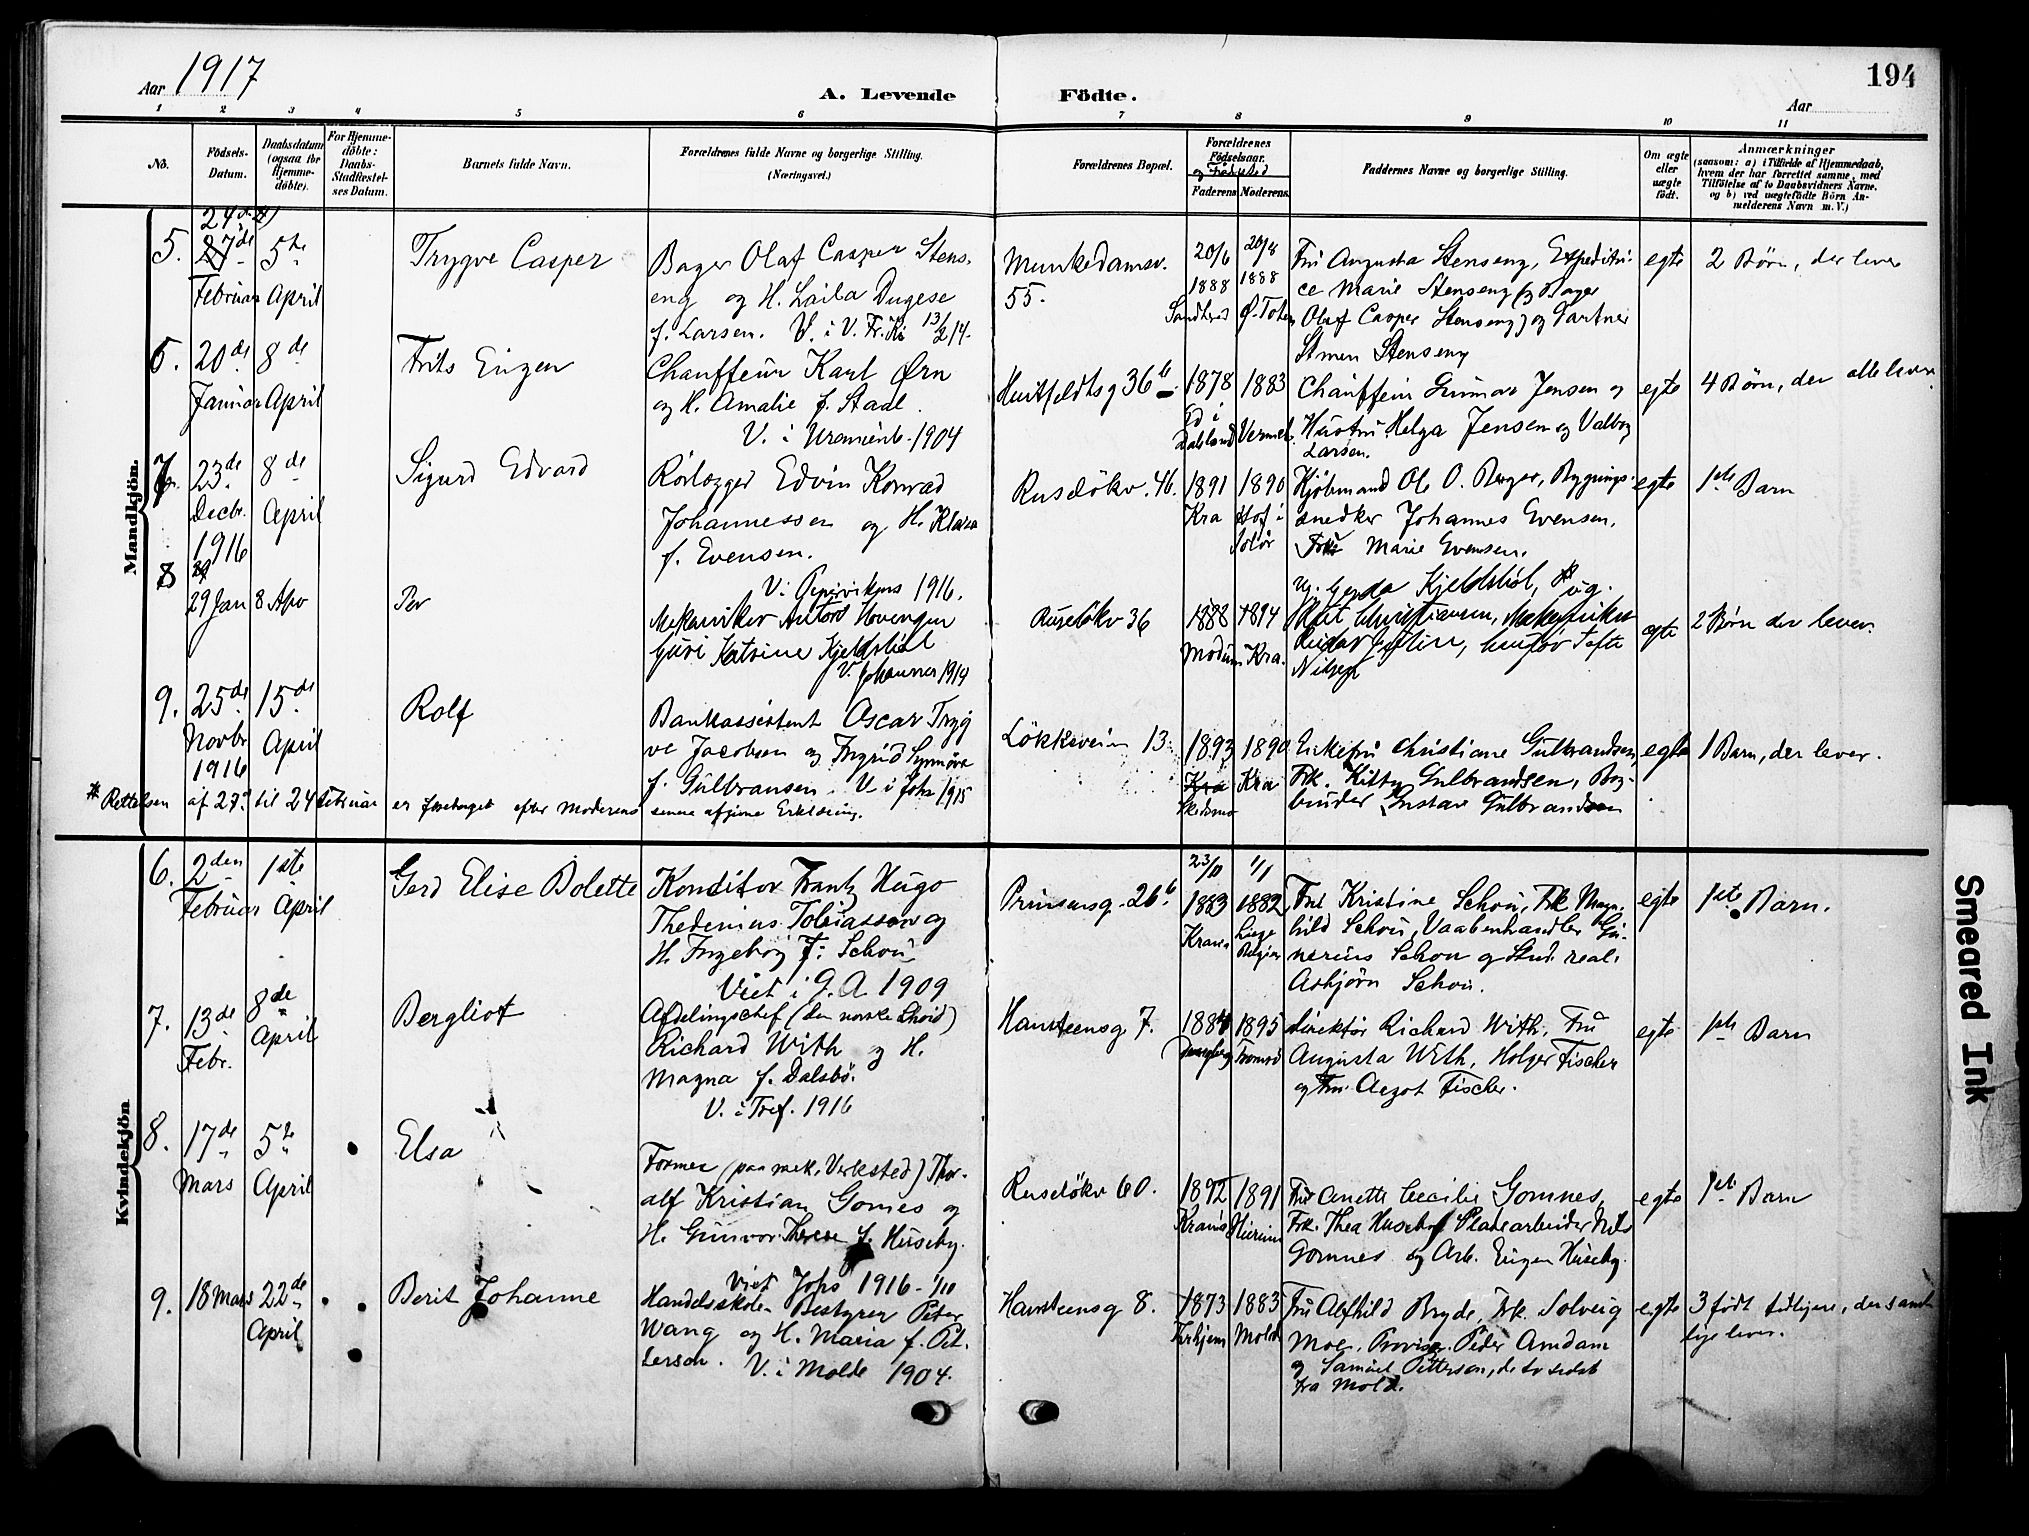 Aar 1917
A. Levende Födte.
194
Aar
1 2 3 4 5 6 7 8 9 10 11
No.
Födsels-Datum.
Daabsdatum (ogsaa for Hjemme-döbte).
For Hjemme-döbte: Daabs-Stadfæstel-ses Datum.
Barnets fulde Navn.
Forældrenes fulde Navne og borgerlige Stilling.
(Næringsvei.)
Forældrenes Bopæl.
Forældrenes Födselsaar. og Fødested
Faderens Moderens.
Faddernes Navne og borgerlige Stilling.
Om ægte eller uægte født.
Anmærkninger
(saasom: a) i Tilfælde af Hjemmedaab, hvem der har forrettet samme, med Tilföielse af to Daabsvidners Navne, og b) ved uægtefödte Börn An-melderens Navn m. V.)
Mandkjön.
5. 24de
27de Februar
5te April
Trygve Casper
Bager Olaf Casper Stens-
eng og H. Laila Dugese
f. Larsen. V. i V. Fr. K. 13/2 14.
Munkedamsv.
55.
20/6 1888
20/8 1888 Ø. Toten
Fru Augusta Stenseng, Expeditri-
ce Marie Stenseng og Bager
Olaf Casper Stenseng og Gartner
Simen Stenseng
egte
2 Børn, der lever
6. 20de Januar
8de April
Frits Eugen
Chauffeur Karl Ørn
og H. Amalie f. Staal.
V. i Uranienb. 1904
Huitfeldtsg 36b
1878
1883
Chauffeur Gunnar Jensen og
Hustru Helga Jensen og Valborg
Larsen.
egte
4 Børn, der alle lever
7. 23de Decbr. 1916
8de April
Sigurd Edvard
Rørlægger Edvin Konrad
Johannessen og H. Klara
f. Evensen.
V. i Pipervikens 1916.
Ruseløkv. 46.
1891 Kra
1890 Hof i Solør
Kjøbmand Ole O. Berger, Bygnings-
snedker Johannes Evensen,
Frk Marie Evensen.
egte
1ste Barn
8 29 Jan
8 Apr
Per
Mekaniker Anton Hovengen
Guri Katrine Kjeldsbøl
V. Johannes 1914
Ruseløkv 36
1888 Modum
1894 Kra.
Gerda Kjeldsbøl,
Christiansen, Mekaniker
Tofte
Nilsen
egte
2 Børn der lever.
9. 25de Novbr 1916
15de April
Rolf
Bankassistent Oscar Tryg
ve Jacobsen og Ingrid Synnøve
f. Gulbransen. V. i Joh 1915
Løkkeveien 13.
1893 Kra Skedsmo
1890 Kra
Enkefru Christiane Gulbrandsen,
Frk. Kitty Gulbrandsen, Bog-
binder Gustav Gulbrandsen
egte
1 Barn, der lever.
* Rettelsen af 27de til 24 Februar er foretaget efter Moderens senere afgivne Erklæring.
Kvindekjön
6. 2den Februar
1ste April
Gerd Elise Bolette
Konditor Frantz Hugo
Thedenius Tobiassen og
H. Ingeborg f. Schou
Viet i G. A. 1909
Prinsensg. 26b.
23/11 1883 Krania
1/1 1882 Liege Belgien
Frk Kristine Schou, Frk Magn-
hild Schou, Vaabenhandler Gu-
nerius Schou og Stud. real.
Asbjørn Schou.
egte
1ste Barn.
7. 13de Febr.
8de April
Bergliot
Afdelingschef (den norske Lloid)
Richard With og H.
Magna f. Dalsbø.
V. i Tref. 1916
Hansteensg 7.
1884
1895 Tromsø
Direktør Richard With, Fru
Augusta With, Holger Fischer
og Fru Aagot Fischer.
egte
1ste Barn
8. 17de Mars
5te April
Elsa
Former (paa mek. Verksted) Thor-
alf Kristian Gomnes og
H. Gunvor Therese f. Huseby.
Viet Johs 1916 - 1/10
Ruseløkv 60.
1892 Krania
1891
Fru Anette Cecilie Gomnes,
Frk. Thea Huseby, Pladearbeider Nils
Gomnes og Arb. Eugen Huseby.
egte
1ste Barn
9. 18 Mars
22de April
Berit Johanne
Handelsskole-Bestyrer Peter
Wang og H. Maria f. Pet-
terson. V. i Molde 1904.
Hansteensg 8.
1873
1883 Molde
Fru Alfhild Bryde, Frk. Solveig
Moe, Provisor Peder Amdam
og Samuel Pettersen, de to sidst
fra Molde.
egte
3 født tidligere, der samt-
lige lever.
Smeared Ink